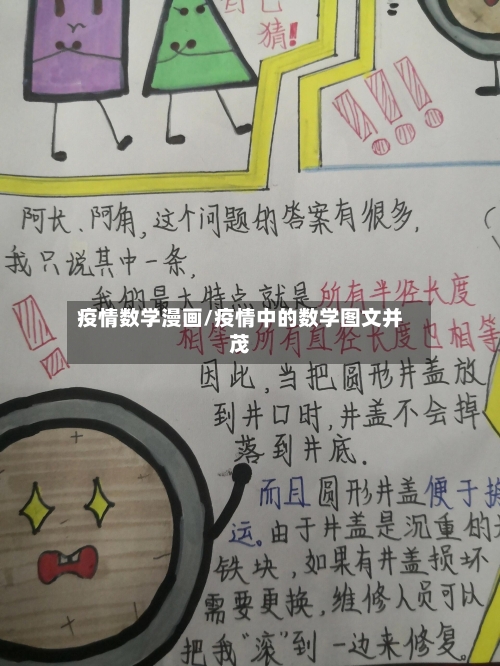 自己
猜!
!!!
阿长、阿角,这个问题的答案有很多,
我只说其中一条,
我们最大特点就是所有半径长度
相等,所有直径长度也相等
!!
疫情数学漫画/疫情中的数学图文并
茂
因此,当把圆形井盖放
到井口时,井盖不会掉
落到井底.
而且圆形井盖便于搬
运。由于井盖是沉重的大
铁块,如果有井盖损坏
需要更换,维修人员可以
把我“滚”到一边来修复。